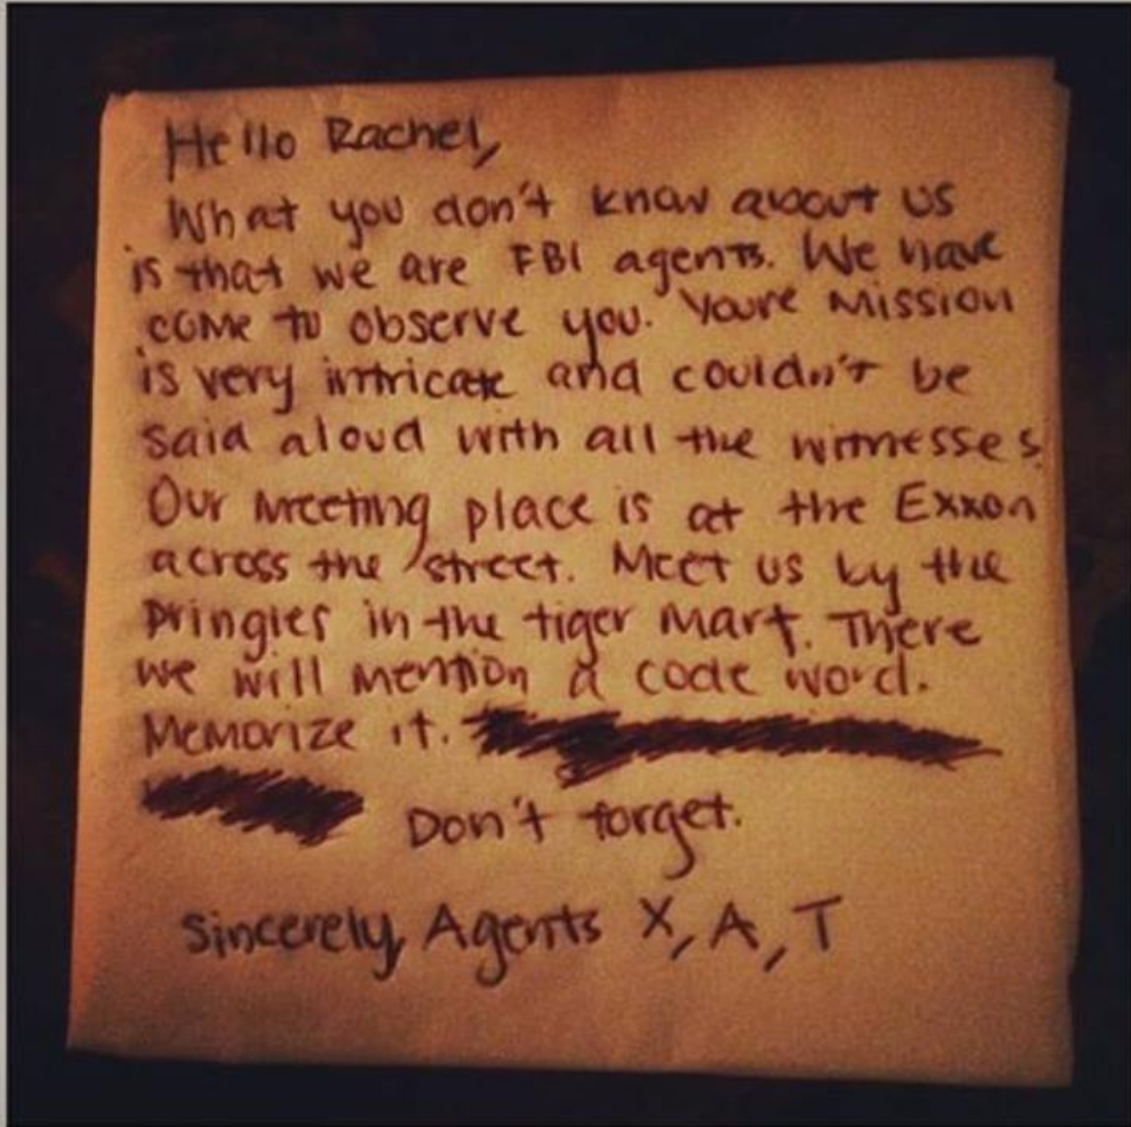 Hello Rachel,
What you don't know about us
is that we are FBI agents. We have
come to observe you. Youre Mission
is very intricate and couldn't be
said aloud with all the witnesses.
Our meeting place is at the Exxon
across the street. Meet us by the
pringles in the tiger Mart. There
we will mention a code word.
Memorize it.
Don't forget.
Sincerely, Agents X, A, T